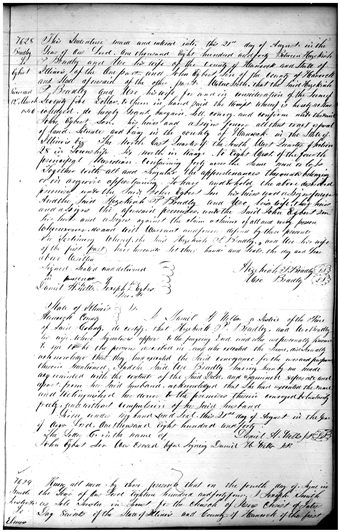 7628 This Indenture made and entered into, this 21st day of August in the
Bradley Year of our Lord, One thousand eight hundred and forty Between Hezekiah
to P Bradly and Uce his wife of the County of Hancock and State of
Egbert Illinois of the One part and John Egbert Senr of the County of Hancock
and State aforesaid of the other part, Witnesseth, that the said Hezekiah
P Bradly and Uce, his wife for and in consideration of the sum of
12 March Seventy five Dollars, to them in hand paid the receipt whereof is hereby acknow
ledged, do hereby Grant bargain sell convey and confirm unto the said
John Egbert Senr his heirs and assigns forever all that tract or parcel
of land, Situate and lying in the County of Hancock in the State of
Illinois viz. The North East quarter of the South West quarter of section
28 in Township Six north in Range No Eight West of the fourth
principal Meridian Containing forty acres the same more or less
Together with all and singular the appurtenances thereunto belonging
or in anywise appertaining. To have and to hold the above described
premises unto the said John Egbert Senr his heirs and assigns forever
And the said Hezekiah P Bradly, and Uce, his wife, their heirs
and assigns the aforesaid premises unto the said John Egbert Senr
his heirs and assigns against the claim or claims of all and every person
whomsoever do and will Warrant and forever defend by these presents
In Testimony Whereof, the said Hezekiah P Bradly, and Uce his wife
of the first part, have hereunto set their hands and seals, the day and year
above written
Signed sealed and delivered
in presence Hezekiah P Bradly
Daniel H Wells Joseph Egbert Uce Bradly
State of Illinois
Hancock County I Daniel H Wells a Justice of the Peace
of said County, do certify, that Hezekiah P Bradly, and Uce Bradly
his wife whose signatures appear to the foregoing Deed and who are personally known
to me to be the persons described in and who executed the same, did severally
acknowledge that they had executed the said conveyance for the uses and purposes
therein mentioned, And the said Uce Bradly having been by me made
acquainted with the contents of the said Deed, and examined separate and
apart from her said husband, acknowledged that She had executed the same
and relinquished her dower to the premises therein conveyed voluntarily
freely, and without compulsion of her said husband
Given under my hand and Seal this 21st day of August in the year
of our Lord One thousand eight hundred and forty
The letter E in the name of Daniel H Wells JP
John Egbert Senr before signing Daniel H Wells JP
7629 Know all men by these presents that on the fourth day of June in
Smith the Year of our Lord Eighteen hundred and forty four I Joseph Smith
Sole Trustee in Trust for the Church of Jesus Christ of Latter
to Day Saints of the State of Illinois and County of Hancock of the first